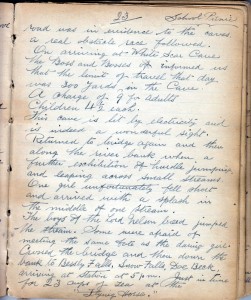 23 School Picnic
road was in evidence to the caves
a real obstacle race followed.
On arriving at White Scar Cave
The Boss and Bosses informed us
that the limit of travel that day
was 300 yards in the Cave
A Charge of 9d for Adults
Children 4½ each.
This cave is lit by electricity and
is indeed a wonderful sight.
Returned to bridge again and then
along the river bank when a
further exhibition of hurdle jumping
and leaping across small streams
One girl unfortunately fell short
and arrived with a splash in
the middle of one stream.
The boys of the Lord Nelson breed jumped
the stream. Some were afraid of
meeting the same fate as the daring girl.
Crossed the bridge and then down the
past Beezley Falls, Snow Falls,
arriving at station at 5 pm. Just in time
for 23 cups of tea at the
"Flying Horse."